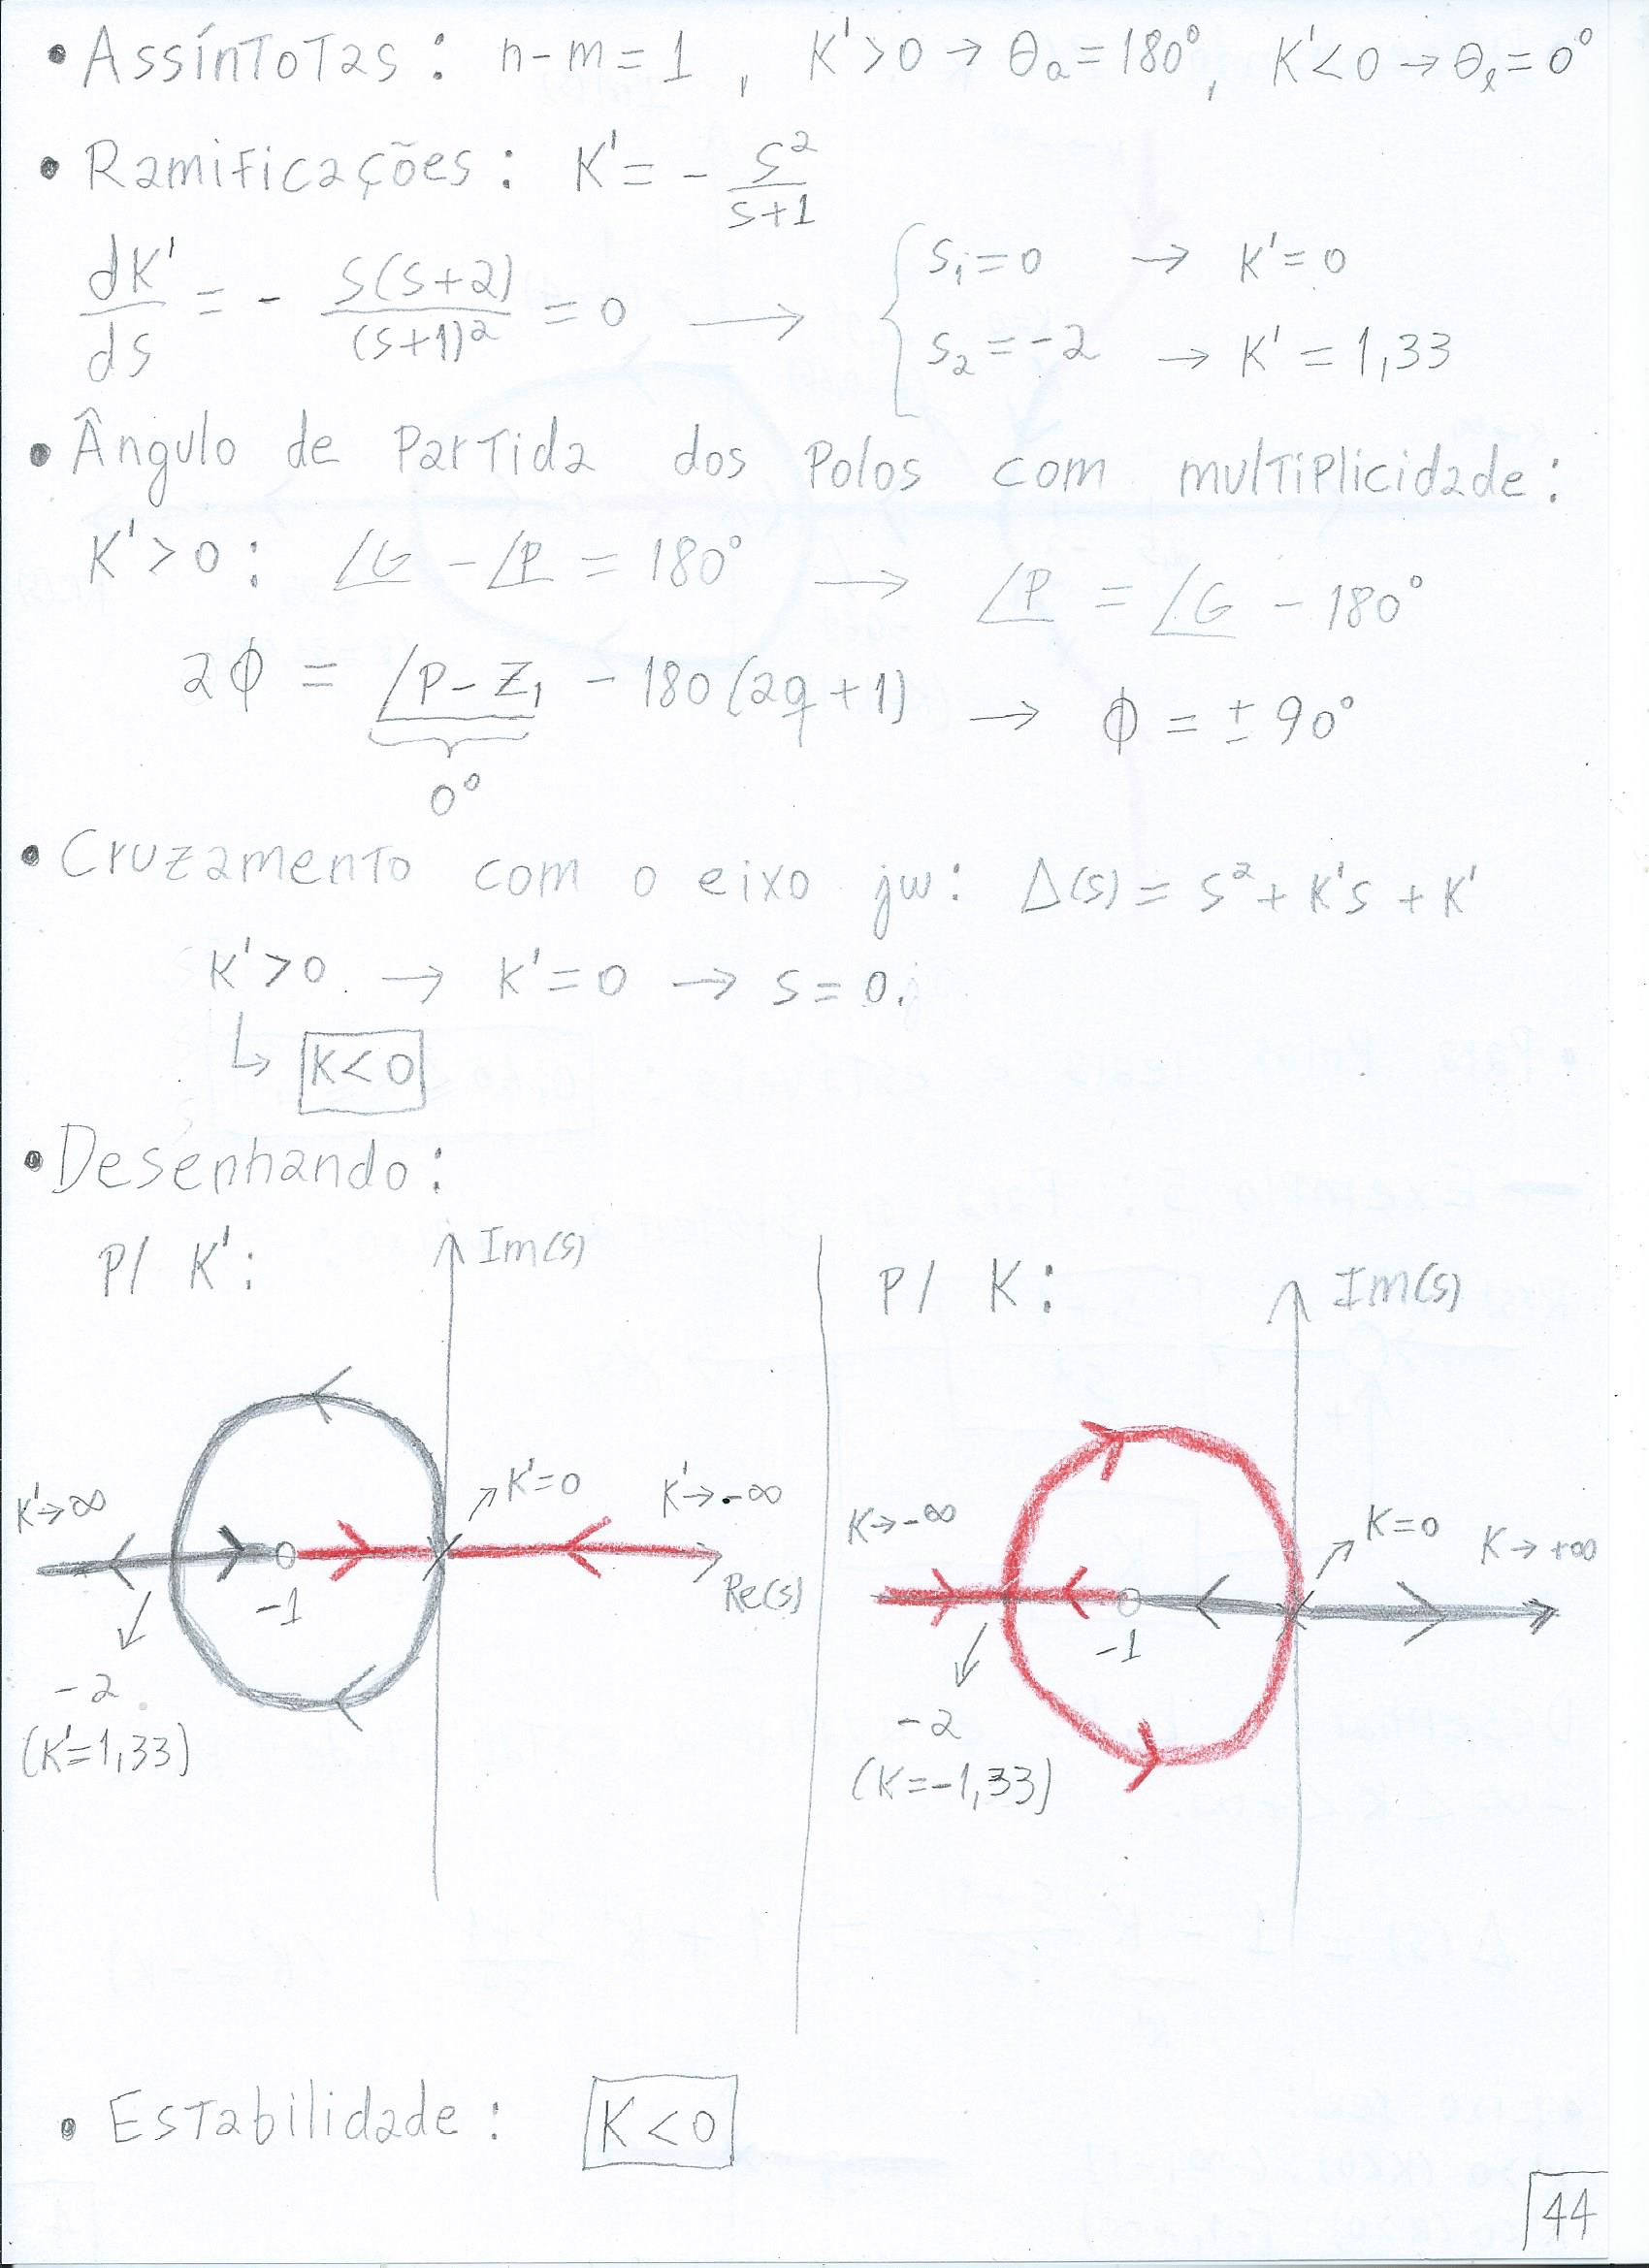 • Assíntotas: n-m=1, K'>0 → θa=180°, K'<0 → θa=0°
• Ramificações: K' = - s²/(s+1)
dK'/ds = - s(s+2)/(s+1)² = 0 → { s₁=0 → K'=0
s₂=-2 → K'=1,33
• Ângulo de Partida dos Polos com multiplicidade:
K'>0: ∠G - ∠P = 180° → ∠P = ∠G - 180°
2ϕ = ∠P-Z₁ - 180(2q+1) → ϕ = ± 90°
0°
• Cruzamento com o eixo jw: Δ(s) = s² + K's + K'
K'>0 → K'=0 → s=0.
↳ K<0
• Desenhando:
P/ K':
Im(s)
K'→∞
K'=0
K'→-∞
-1
Re(s)
-2
(K'=1,33)
P/ K:
Im(s)
K→-∞
K=0
K→+∞
-1
-2
(K=-1,33)
• Estabilidade: K<0
44